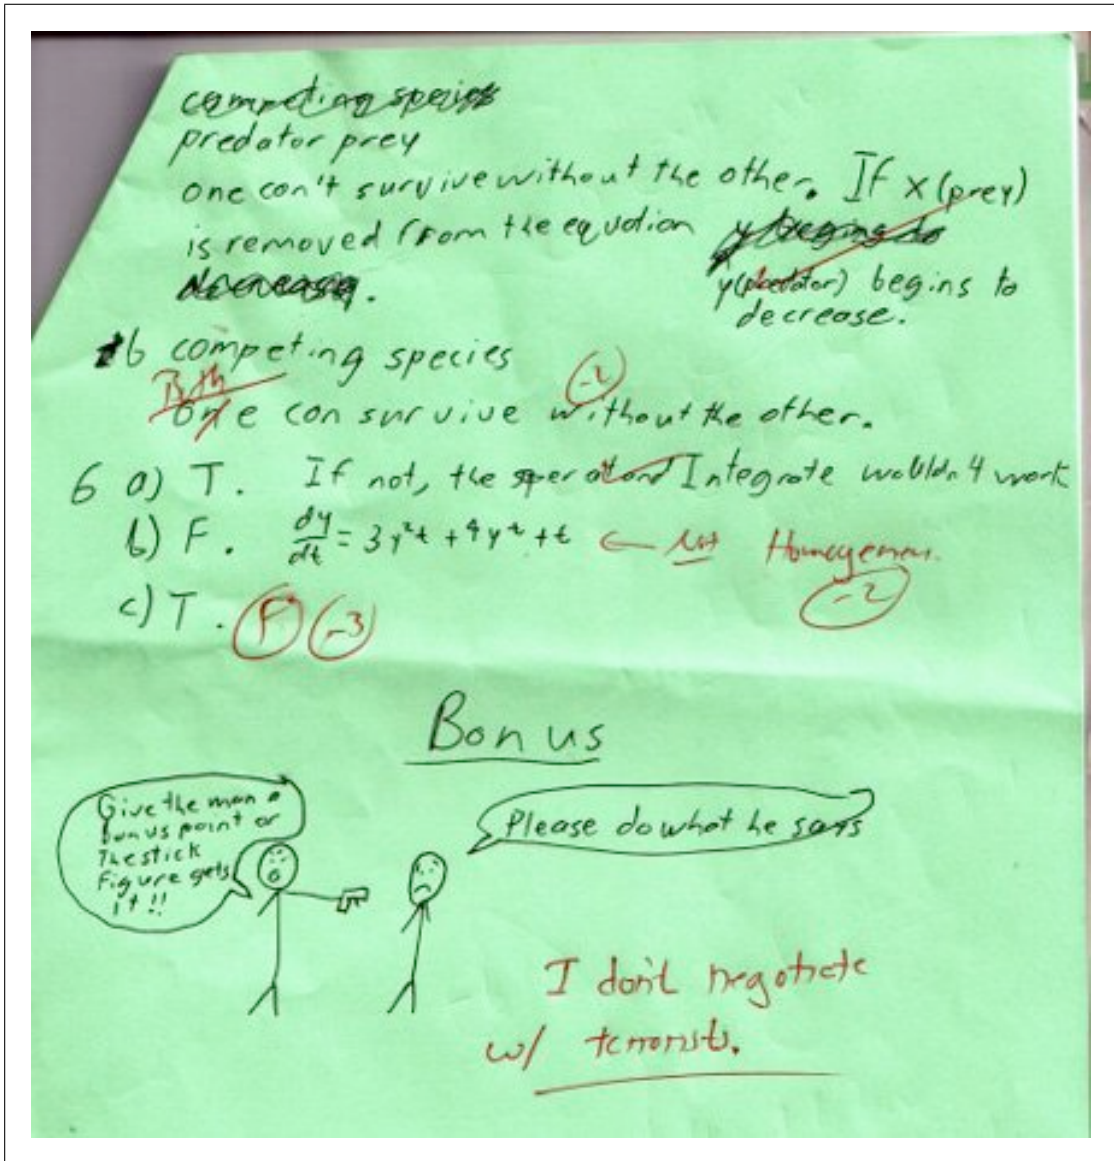 competing species
predator prey
one can't survive without the other. If x (prey)
is removed from the equation y begins to
decrease.
y(predator) begins to
decrease.
b competing species
Both -2
one can survive without the other.
6 a) T. If not, the operator Integrate wouldn't work
b) F. dy/dt = 3y²t + 4y^t + t ← Not Homogeneous.
-2
c) T. F -3
Bonus
Give the man a
bonus point or
The stick
Figure gets
it!!
Please do what he says
I don't negotiate
w/ terrorists.